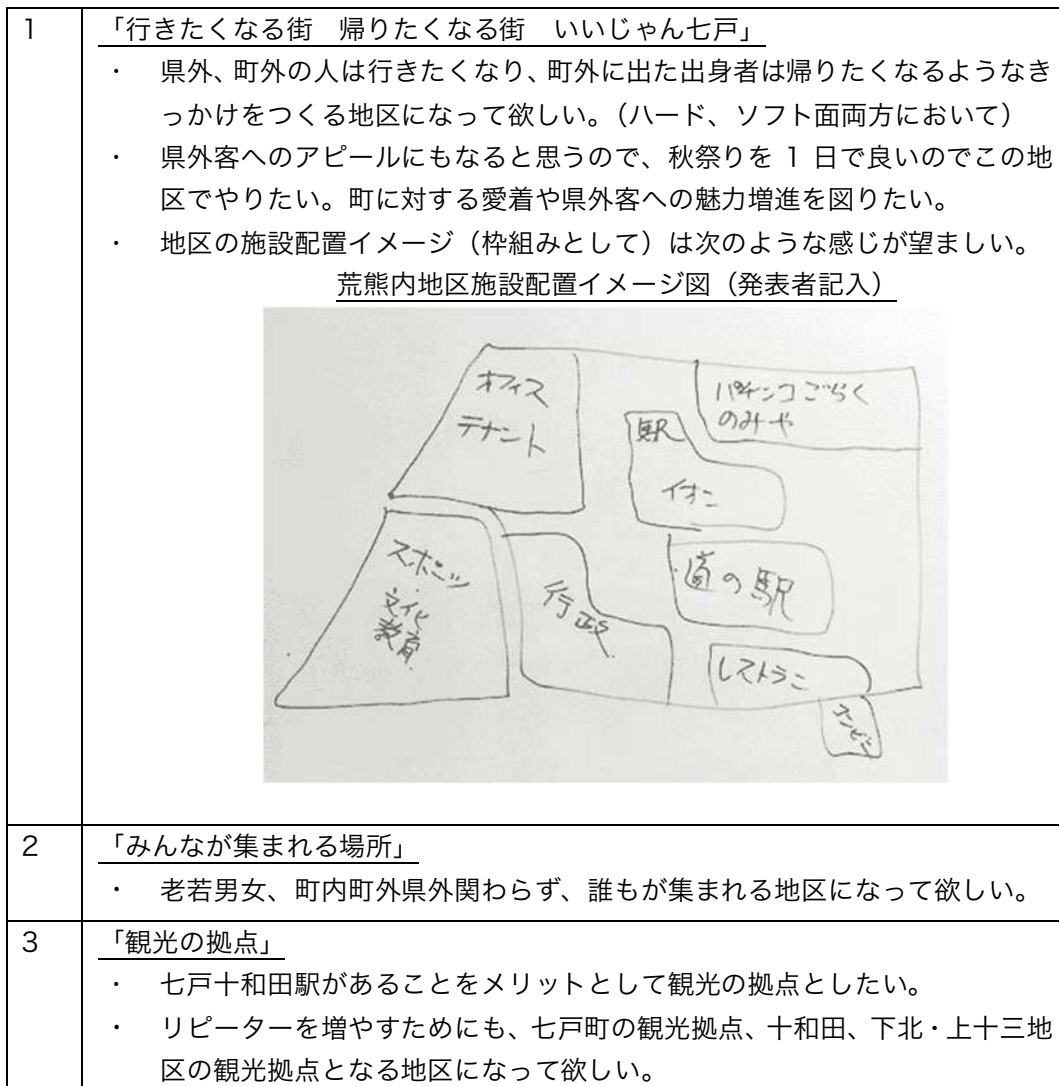 1
「行きたくなる街　帰りたくなる街　いいじゃん七戸」
・　県外、町外の人は行きたくなり、町外に出た出身者は帰りたくなるようなき
っかけをつくる地区になって欲しい。（ハード、ソフト面両方において）
・　県外客へのアピールにもなると思うので、秋祭りを 1 日で良いのでこの地
区でやりたい。町に対する愛着や県外客への魅力増進を図りたい。
・　地区の施設配置イメージ（枠組みとして）は次のような感じが望ましい。
荒熊内地区施設配置イメージ図（発表者記入）
オフィス
テナント
パチンコごらく
のみや
駅
イオン
道の駅
スポーツ
文化
教育
行政
レストラン
コンビニ
2
「みんなが集まれる場所」
・　老若男女、町内町外県外関わらず、誰もが集まれる地区になって欲しい。
3
「観光の拠点」
・　七戸十和田駅があることをメリットとして観光の拠点としたい。
・　リピーターを増やすためにも、七戸町の観光拠点、十和田、下北・上十三地
区の観光拠点となる地区になって欲しい。